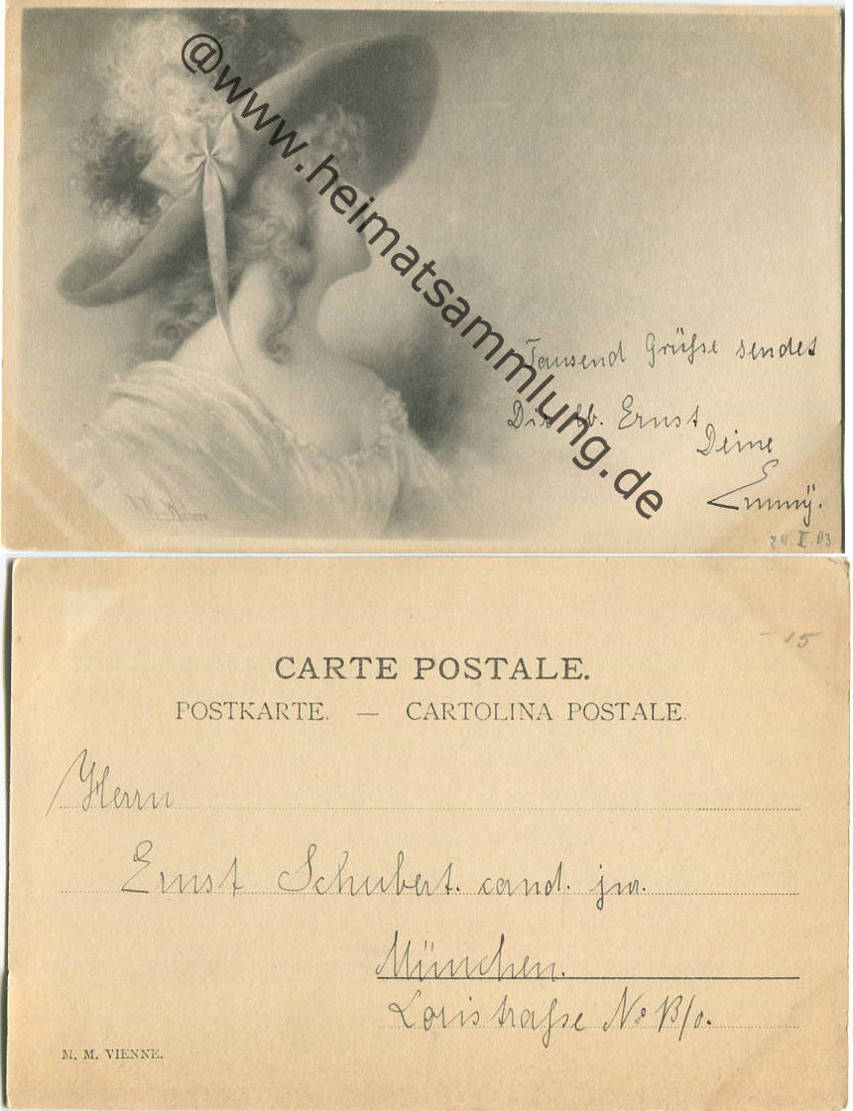 @www.heimatsammlung.de
Tausend Grüße sendet
Dir lb. Ernst
Deine
Emmy.
24. X. 03
15
CARTE POSTALE.
POSTKARTE. — CARTOLINA POSTALE.
Herrn
Ernst Schubert. cand. jur.
München.
Loristraße No
M. M. VIENNE.